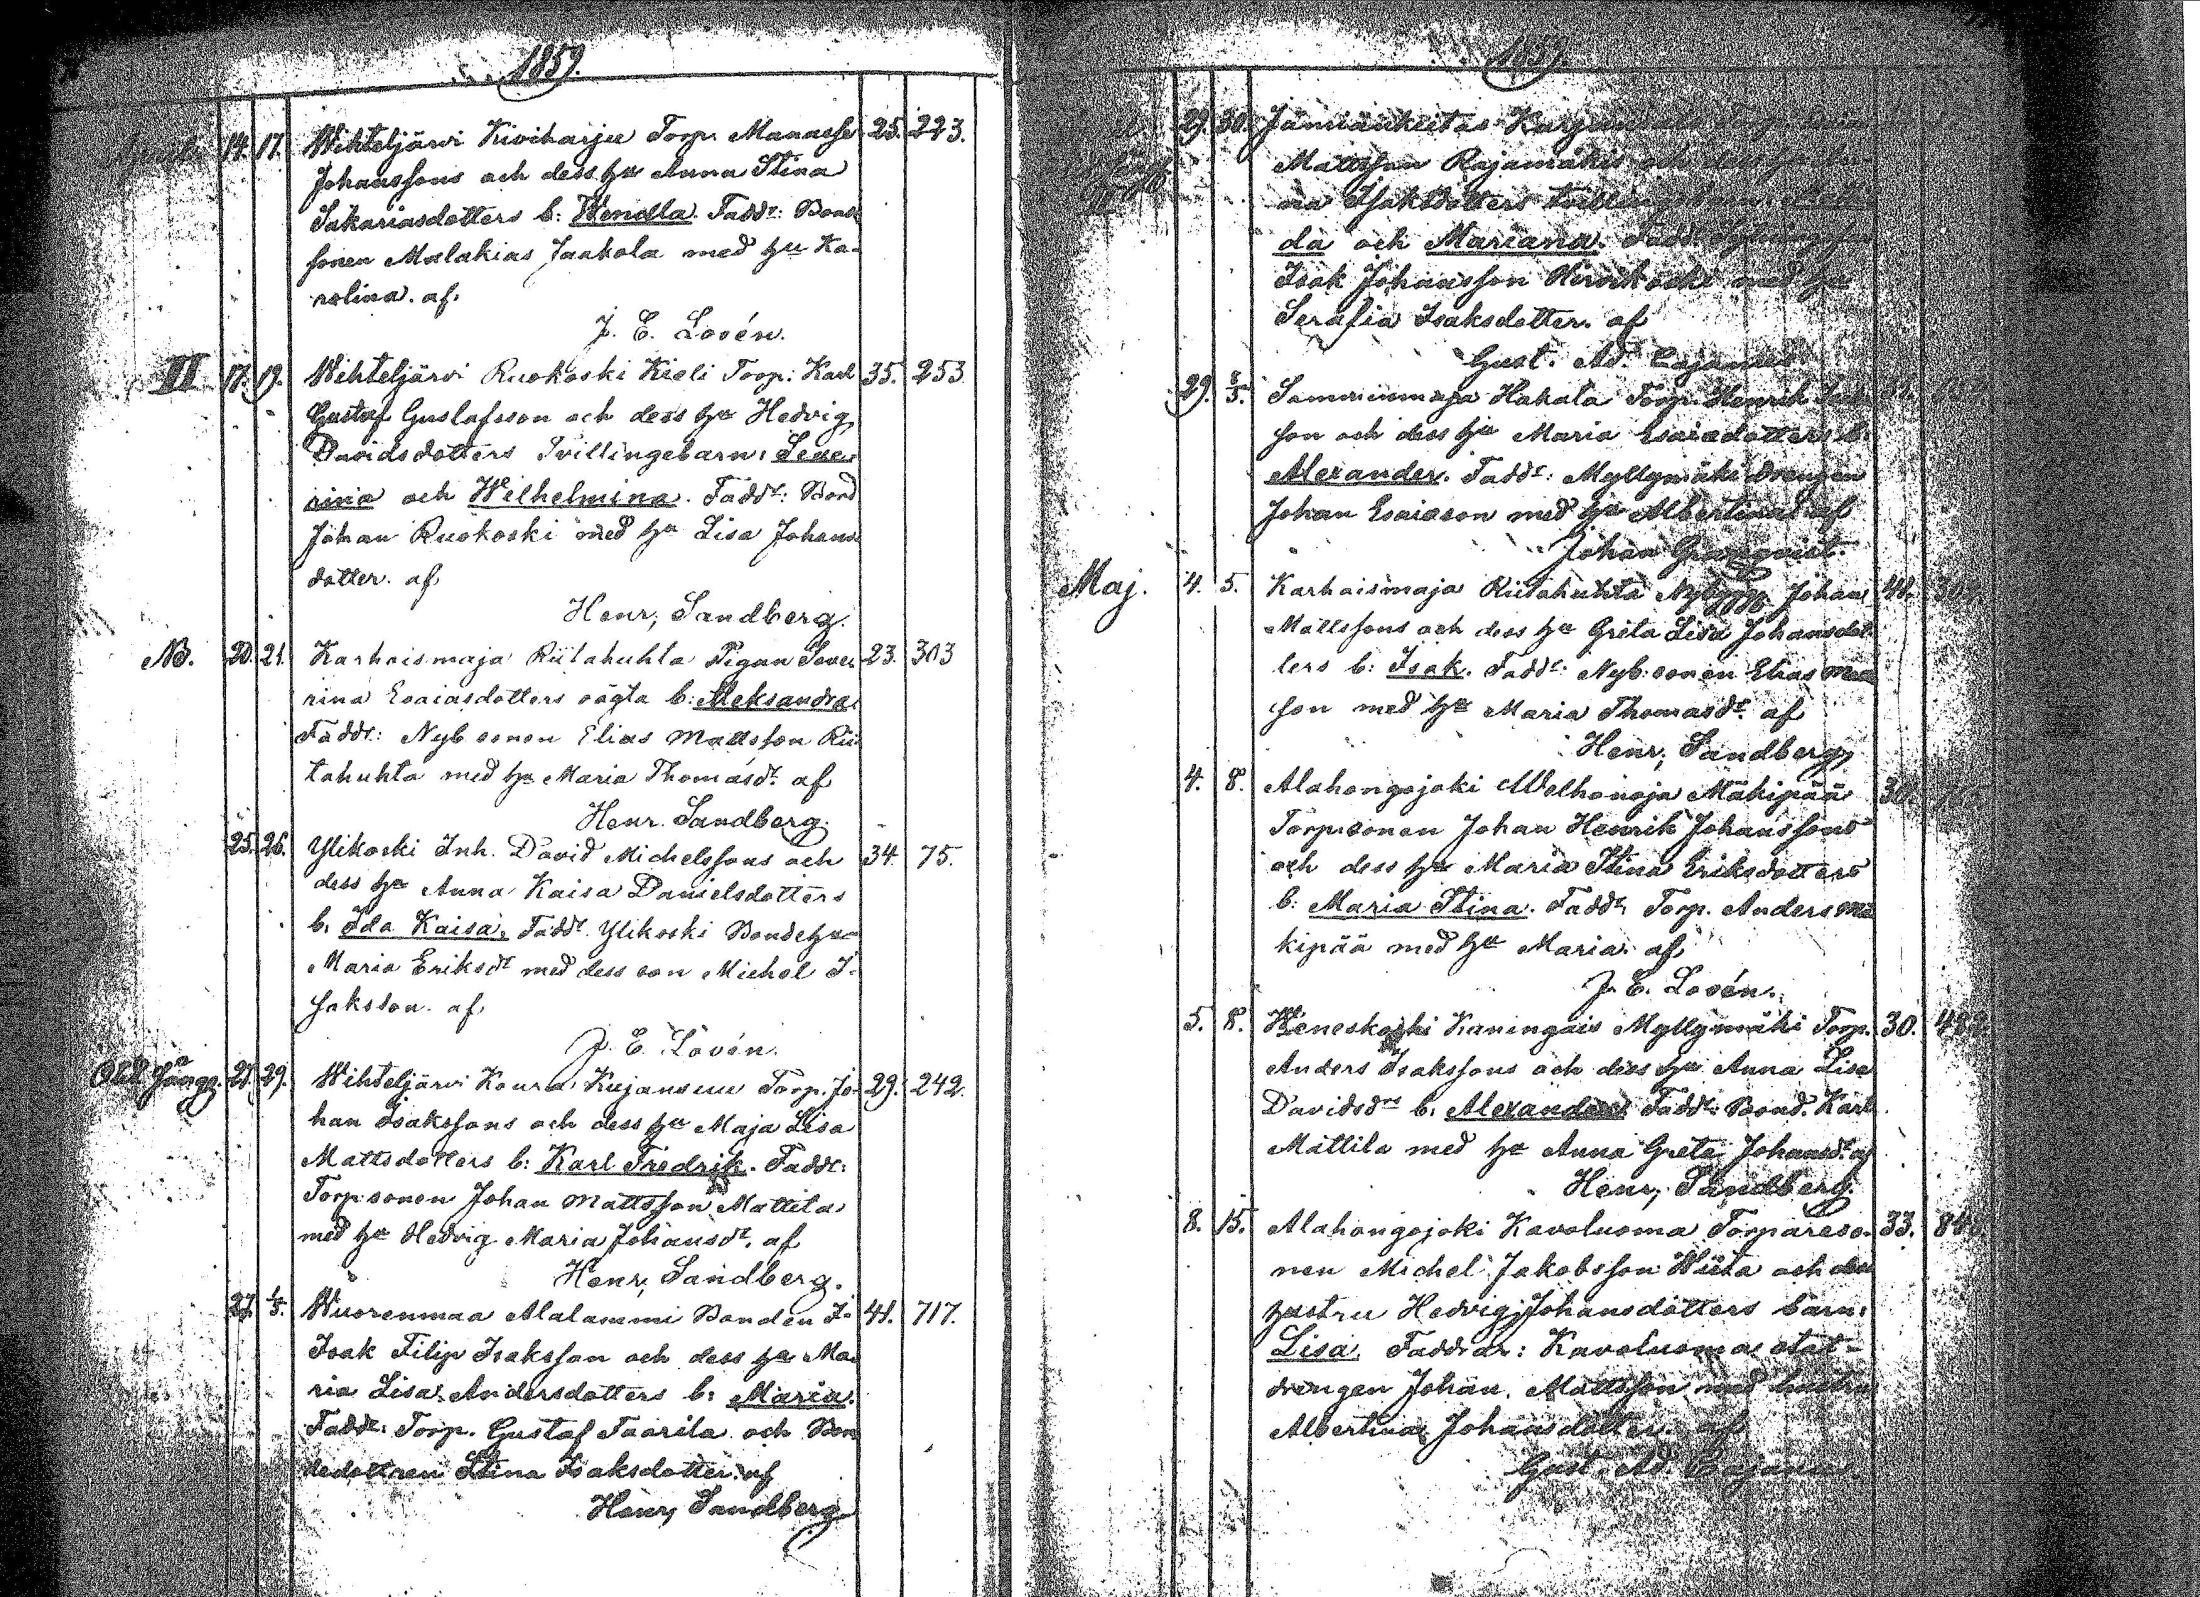 1859.
14. 17. Wihteljärwi Kiviharju Torp. Manasse 25. 223.
Johanssons och dess hu Anna Stina
Sakariasdotters b: Wendla. Faddr: Bond
sonen Malakias Jaakola med hu Ka-
rolina. af.
J. E. Lovén.
II 17. 19. Wihteljärvi Ruokoski Kieli Torp. Karl 35. 253
Gustaf Gustafsson och dess hu Hedvig
Davidsdotters Tvillingebarn: Seve-
rina och Wilhelmina. Faddr: Bond
Johan Ruokoski med hu Lisa Johans
dotter. af.
Henr. Sandberg.
NB. 20. 21. Karhoismaja Riitahuhta Pigan Seve- 23. 303
rina Esaiasdotters oägta b: Aleksandra
Faddr: Nyb sonen Elias Mattsson Rii
tahuhta med hu Maria Thomasdr. af
Henr. Sandberg.
25. 26. Ylikoski Inh. David Michelssons och 34. 75.
dess hu Anna Kaisa Danielsdotters
b. Ida Kaisa. Faddr Ylikoski Bondehu
Maria Eriksdr med dess son Michel I-
sakson. af.
J. E. Lovén.
27. 29. Wihteljärvi Koura Kujansuu Torp. Jo- 29. 242.
han Isakssons och dess hu Maja Lisa
Mattsdotters b: Karl Fredrik. Faddr:
Torp.sonen Johan Mattsson Mattila
med hu Hedvig Maria Johansdr. af
Henr. Sandberg.
27. 1/5. Wuorenmaa Alatammi Bonden I- 41. 717.
Isak Filip Isaksson och dess hu Ma-
ria Lisa Andersdotters b: Maria.
Faddr: Torp. Gustaf Taarila och Bon
dedottren Stina Isaksdotter. af
Henr. Sandberg
1859.
29. 30.
Mattsson Rajamäkis och dess
na Isaksdotters tvillingebarn:
da och Mariana. Faddr
Isak Johansson med hu
Serafia Isaksdotter. af
Gust. Ad. Cajanus
29. 3/5. Samminmaja Hakala Torp. Henrik
son och dess hu Maria Esaiadotters b.
Alexander. Faddr: Myllymäki Drengen
Johan Esaiason med hu Albertina af
Johan Granqvist.
Maj. 4. 5. Karhoismaja Riitahuhta Nybygg. Johan 41.
Mattssons och dess hu Greta Lisa Johansdot-
ters b: Isak. Faddr: Nyb.sonen Elias Matts
son med hu Maria Thomasdr. af
Henr. Sandberg
4. 8. Alahongojoki Welhonoja Mäkipää 30.
Torp.sonen Johan Henrik Johanssons
och dess hu Maria Stina Eriksdotters
b: Maria Stina. Faddr Torp. Anders Mä
kipää med hu Maria. af.
J. E. Lovén.
5. 8. Weneskoski Kaningais Myllymäki Torp. 30.
Anders Isakssons och dess hu Anna Lisa
Davidsdrs b. Alexander Faddr. Bond. Karl
Mattila med hu Anna Greta Johansdr. af
Henr. Sandberg.
8. 15. Alahongojoki Kavoluoma Torpareso- 33.
nen Michel Jakobsson Wiita och dess
hustru Hedvig Johansdotters barn:
Lisa. Faddrar: Kavoluoma stat-
drengen Johan Mattsson med hustru
Albertina Johansdotter. af
Gust. Ad. Cajanus.